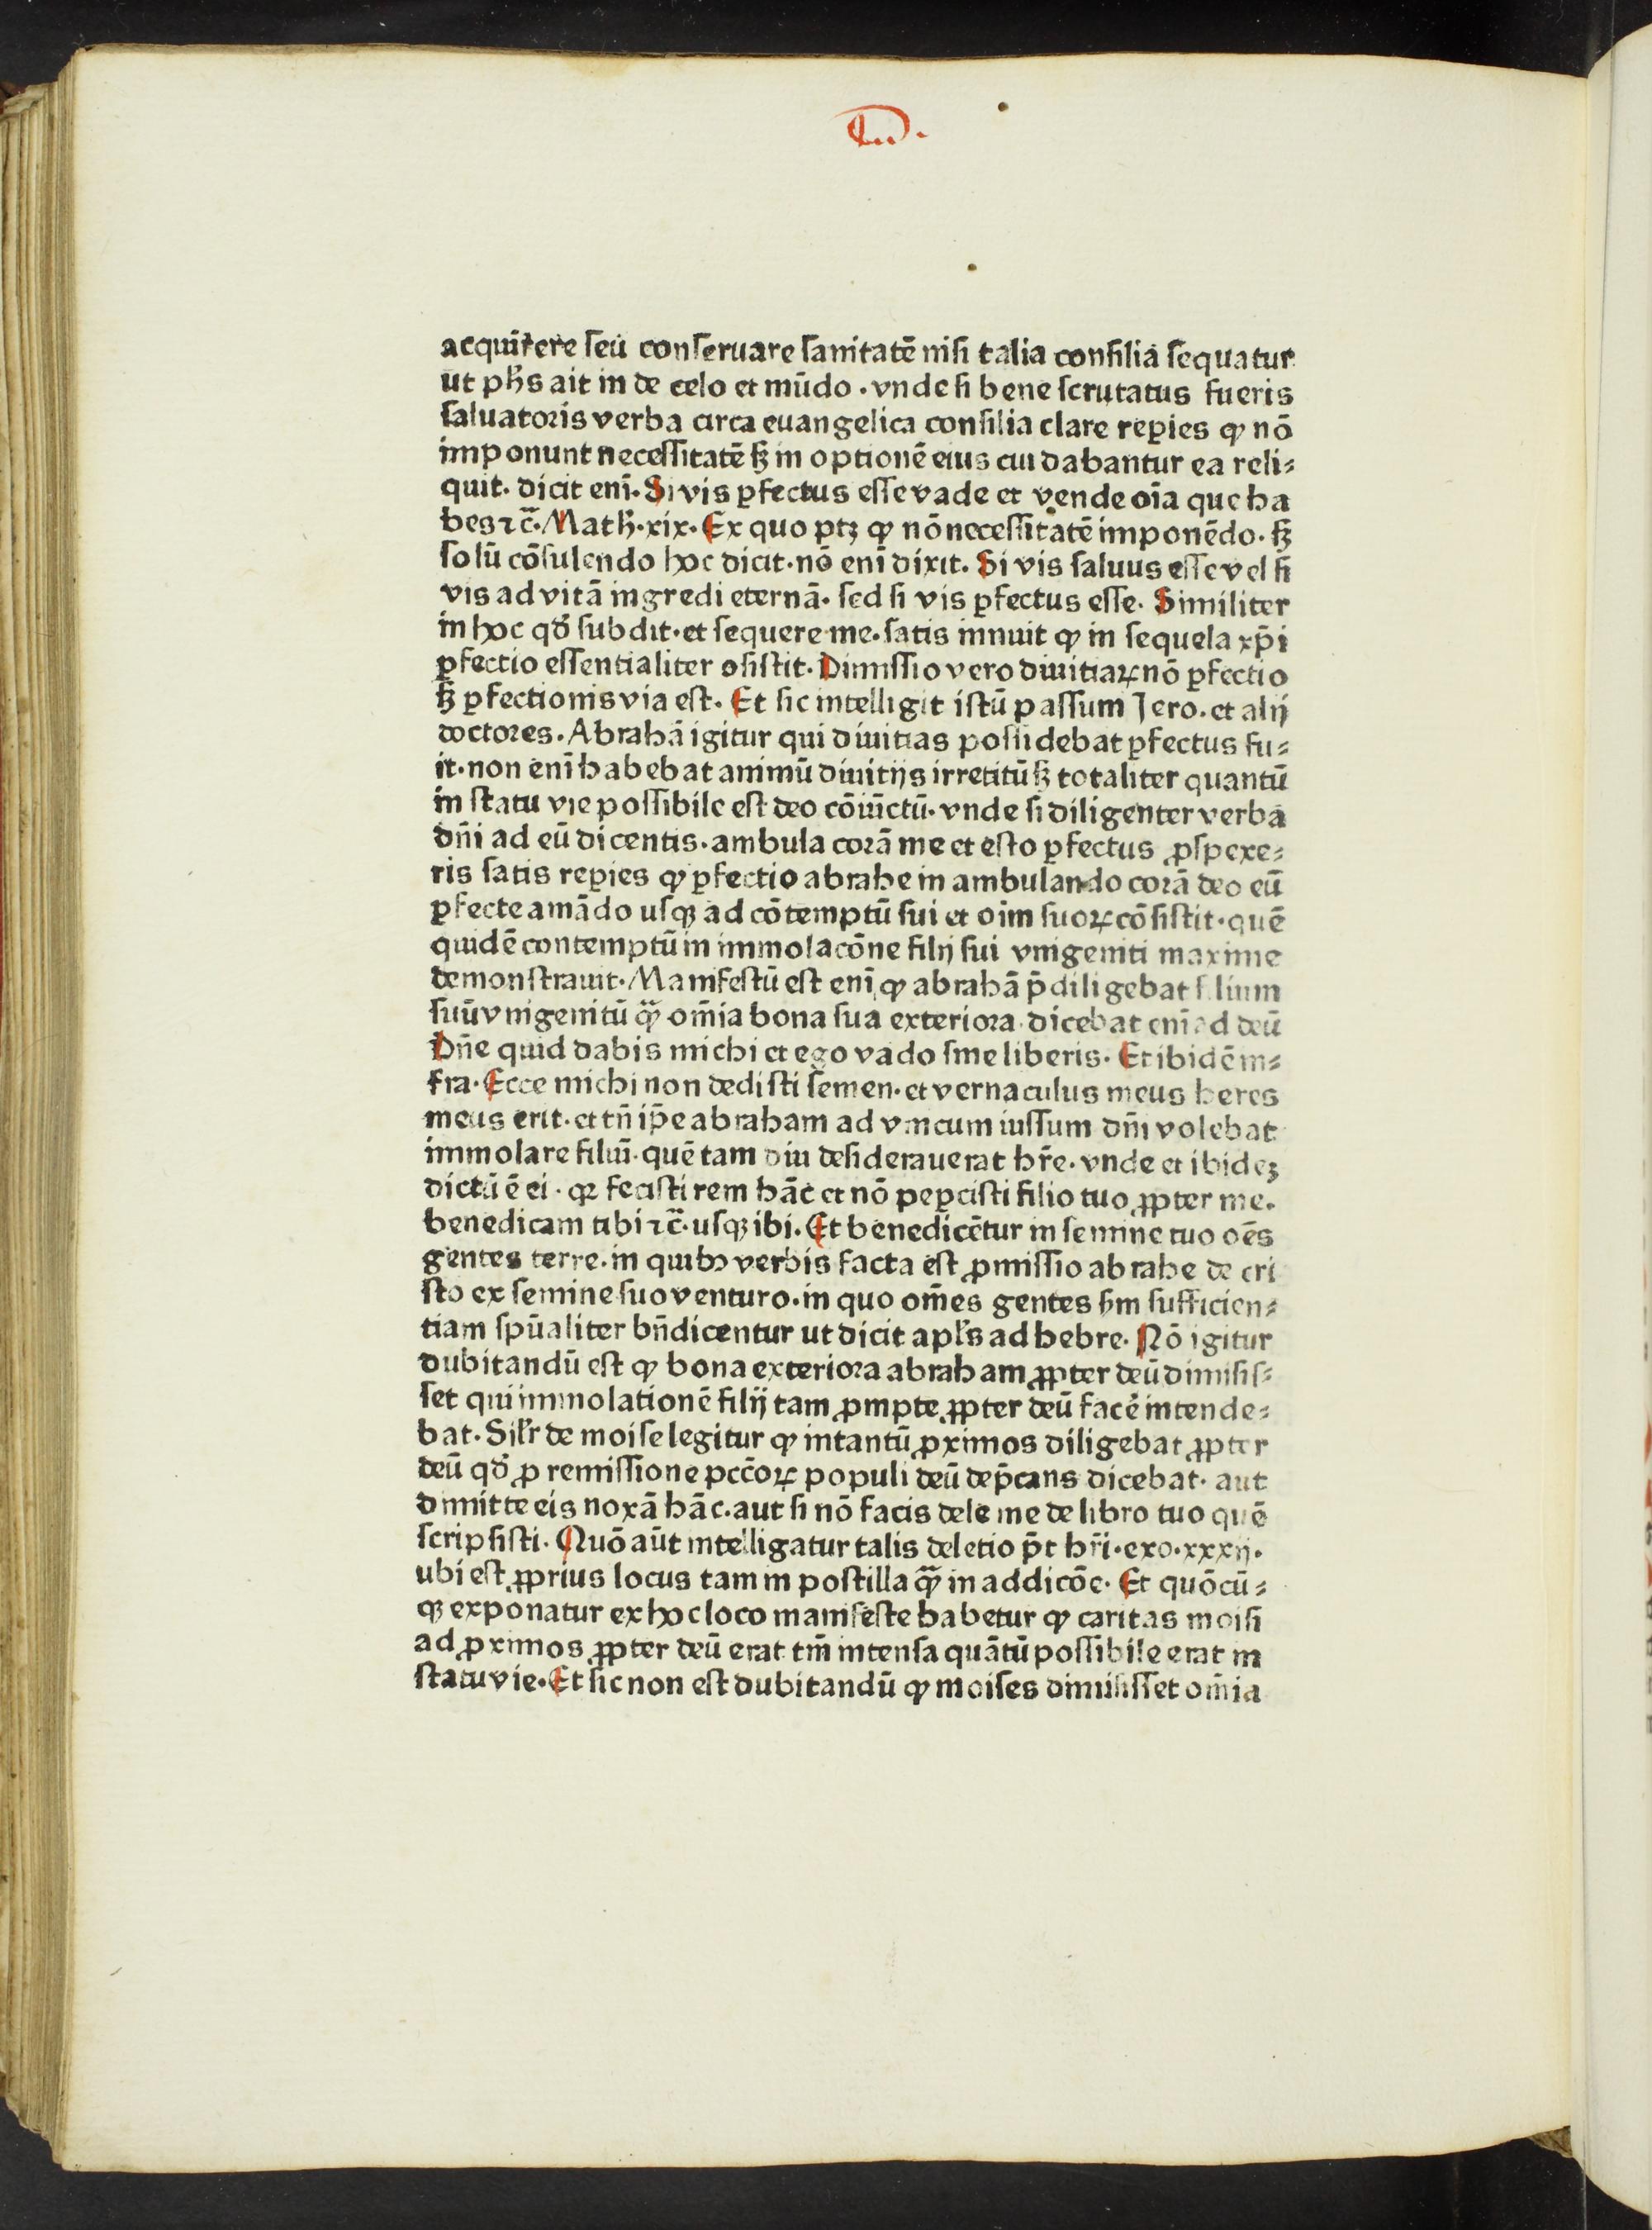 acquirere seu conseruare sanitatē nisi talia consilia sequatur
ut ph̄s ait in de celo et mūdo. vnde si bene scrutatus fueris
saluatoris verba circa euangelica consilia clare reꝑies ꝙ nō
imponunt necessitatē sꝫ in optionē eius cui dabantur ea reli⸗
quit. dicit enī. Si vis ꝑfectus esse vade et vende oīa que ha
bes ⁊c̄. Math̄. xix. Ex quo ptꝫ ꝙ nō necessitatē imponēdo. sꝫ
solū cōsulendo hoc dicit. nō enī dixit. Si vis saluus esse vel si
vis ad vitā ingredi eternā. sed si vis ꝑfectus esse. Similiter
in hoc qd̄ subdit. et sequere me. satis innuit ꝙ in sequela xp̄i
ꝑfectio essentialiter ꝯsistit. Dimissio vero diuitiaꝝ nō ꝑfectio
sꝫ ꝑfectionis via est. Et sic intelligit istū passum Jero. et alij
doctores. Abrahā igitur qui diuitias possidebat ꝑfectus fu⸗
it. non enī habebat animū diuitijs irretitū sꝫ totaliter quantū
in statu vie possibile est deo cōiūctū. vnde si diligenter verba
dn̄i ad eū dicentis. ambula corā me et esto ꝑfectus ꝓspexe⸗
ris satis reꝑies ꝙ ꝑfectio abrahe in ambulando corā deo eū
ꝑfecte amādo usqꝫ ad cōtemptū sui et oīm suoꝝ cōsistit. quē
quidē contemptū in immolacōne filij sui vnigeniti maxime
demonstrauit. Manifestū est enī ꝙ abrahā p̄diligebat filium
suū vnigenitū qͣꝫ om̄ia bona sua exteriora. dicebat enī ad deū
Dn̄e quid dabis michi et ego vado sine liberis. Et ibidē in⸗
fra. Ecce michi non dedisti semen. et vernaculus meus heres
meus erit. et tn̄ ip̄e abraham ad vnicum iussum dn̄i volebat
immolare filiū. quē tam diu desiderauerat hr̄e. vnde et ibideꝫ
dictū ē ei. qꝛ fecisti rem hāc et nō peꝑcisti filio tuo ꝓpter me.
benedicam tibi ⁊c̄. usqꝫ ibi. Et benedicētur in semine tuo oēs
gentes terre. in quibꝰ verbis facta est ꝓmissio abrahe de cri
sto ex semine suo venturo. in quo om̄es gentes s̄m sufficien⸗
tiam spūaliter bn̄dicentur ut dicit apl̄s ad hebre. Nō igitur
dubitandū est ꝙ bona exteriora abraham ꝓpter deū dimisis⸗
set qui immolationē filij tam ꝓmpte ꝓpter deū facē intende⸗
bat. Sil̄r de moise legitur ꝙ intantū ꝓximos diligebat ꝓpter
deū qd̄ ꝓ remissione pcc̄oꝝ populi deū dep̄cans dicebat. aut
dimitte eis noxā hāc. aut si nō facis dele me de libro tuo quē
scripsisti. Quō aūt intelligatur talis deletio p̄t hr̄i. exo. xxxij.
ubi est ꝓprius locus tam in postilla qͣꝫ in addicōe. Et quōcū⸗
qꝫ exponatur ex hoc loco manifeste habetur ꝙ caritas moisi
ad ꝓximos ꝓpter deū erat tm̄ intensa quātū possibile erat in
statu vie. Et sic non est dubitandū ꝙ moises dimisisset om̄ia